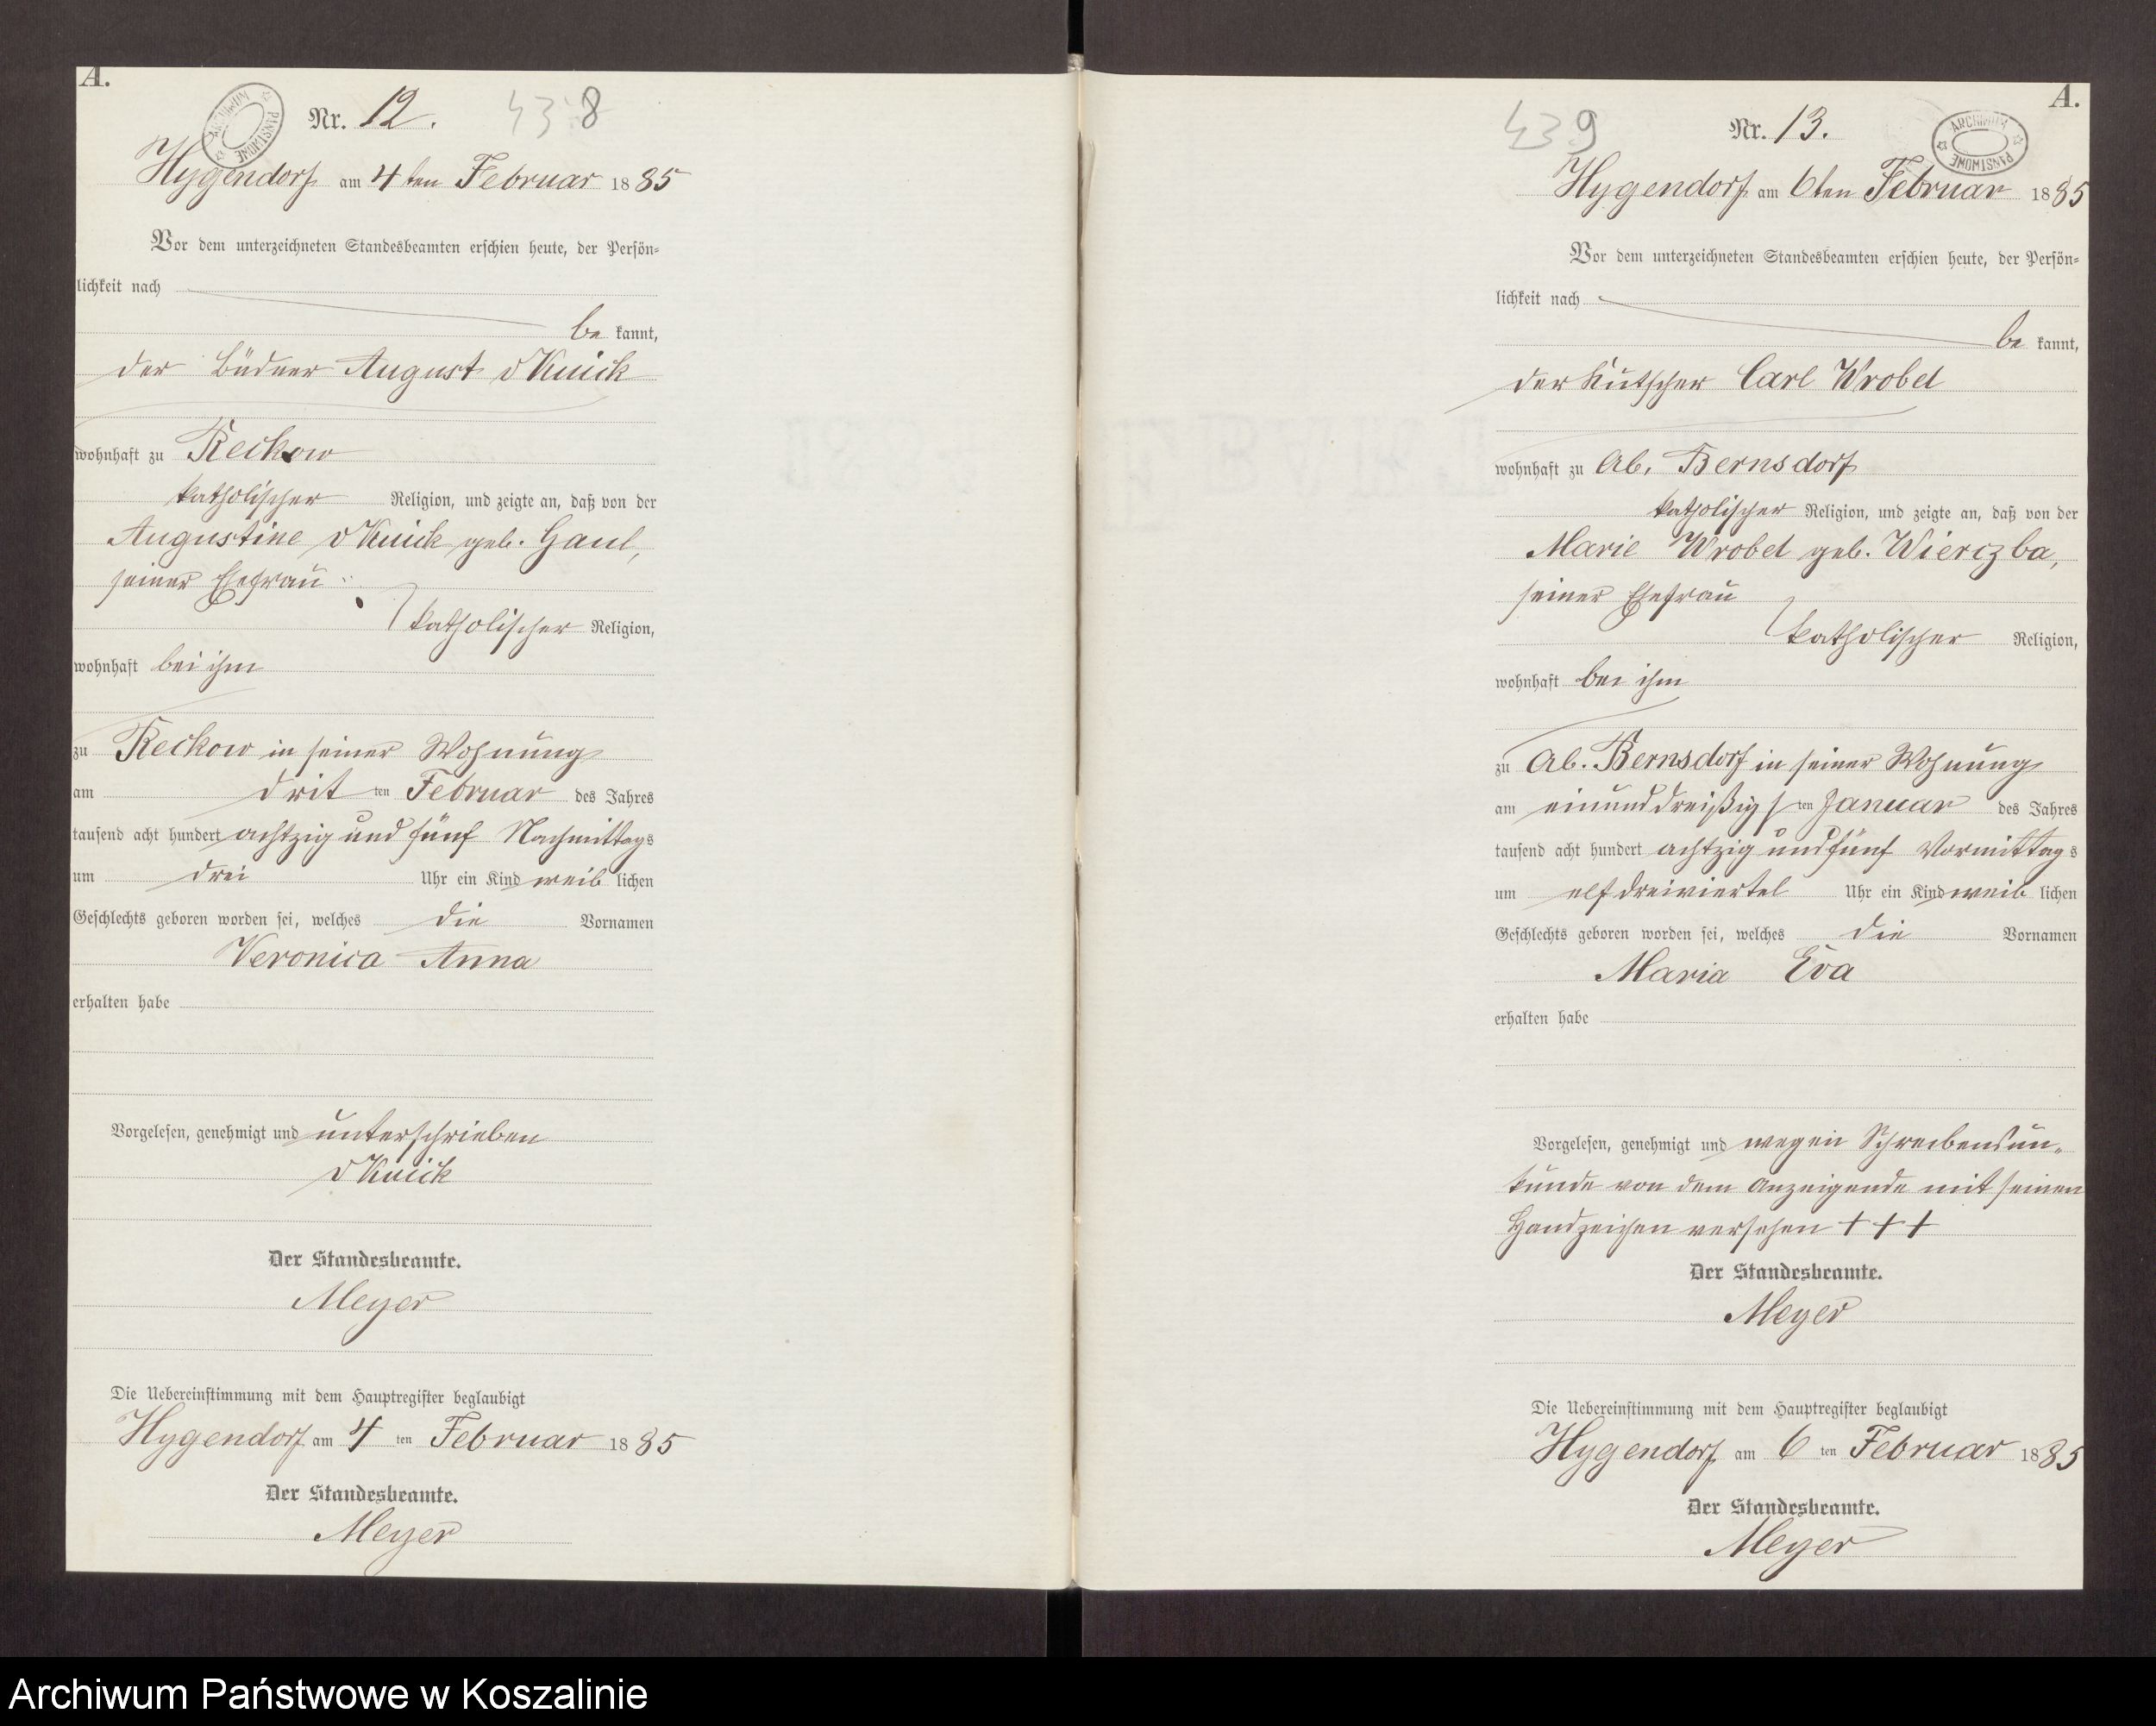 A.
ARCHIWUM PAŃSTWOWE
Nr. 12. 438
Hygendorf am 4 ten Februar 1885
Vor dem unterzeichneten Standesbeamten erschien heute, der Persön-
lichkeit nach
be kannt,
der Büdner August v Kuick
wohnhaft zu Reckow
katholischer Religion, und zeigte an, daß von der
Augustine v Kuick geb. Gaul,
seiner Ehefrau
katholischer Religion,
wohnhaft bei ihm
zu Reckow in seiner Wohnung
am drit ten Februar des Jahres
tausend acht hundert achtzig und fünf Nachmittags
um drei Uhr ein Kind weib lichen
Geschlechts geboren worden sei, welches die Vornamen
Veronica Anna
erhalten habe
Vorgelesen, genehmigt und unterschrieben
v Kuick
Der Standesbeamte.
Meyer
Die Uebereinstimmung mit dem Hauptregister beglaubigt
Hygendorf am 4 ten Februar 1885
Der Standesbeamte.
Meyer
A.
439 Nr. 13.
ARCHIWUM PAŃSTWOWE
Hygendorf am 6ten Februar 1885
Vor dem unterzeichneten Standesbeamten erschien heute, der Persön-
lichkeit nach
be kannt,
der Kutscher Carl Wrobel
wohnhaft zu Ab. Bernsdorf
katholischer Religion, und zeigte an, daß von der
Marie Wrobel geb. Wierczba,
seiner Ehefrau
katholischer Religion,
wohnhaft bei ihm
zu Ab. Bernsdorf in seiner Wohnung
am einunddreißigs ten Januar des Jahres
tausend acht hundert achtzig und fünf Vormittags
um elf dreiviertel Uhr ein Kind weib lichen
Geschlechts geboren worden sei, welches die Vornamen
Maria Eva
erhalten habe
Vorgelesen, genehmigt und wegen Schreibensun-
kunde von dem Anzeigende mit seinen
Handzeichen versehen + + +
Der Standesbeamte.
Meyer
Die Uebereinstimmung mit dem Hauptregister beglaubigt
Hygendorf am 6 ten Februar 1885
Der Standesbeamte.
Meyer
Archiwum Państwowe w Koszalinie